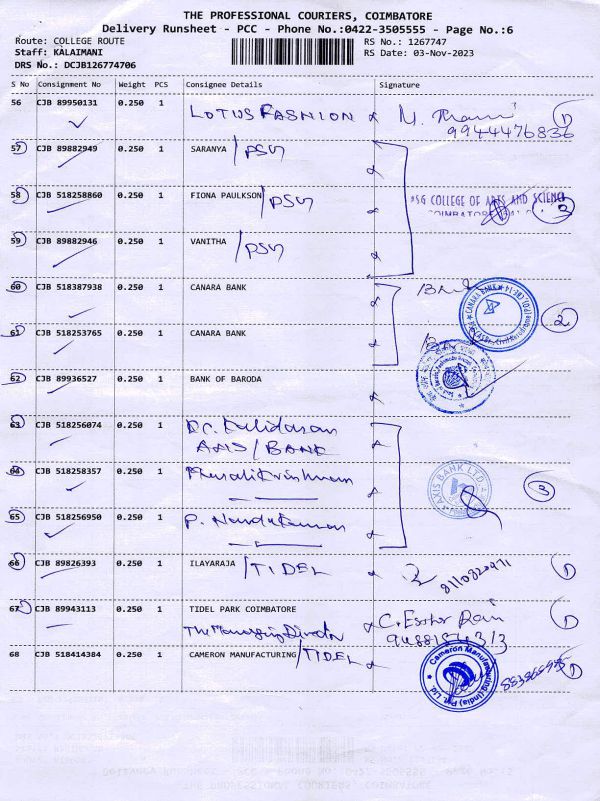 THE PROFESSIONAL COURIERS, COIMBATORE
Delivery Runsheet - PCC - Phone No.:0422-3505555 - Page No.:6
Route: COLLEGE ROUTE RS No.: 1267747
Staff: KALAIMANI RS Date: 03-Nov-2023
DRS No.: DCJB126774706
S No Consignment No Weight PCS Consignee Details Signature
56 CJB 89950131 0.250 1 LOTUS FASHION
9944476836
57 CJB 89882949 0.250 1 SARANYA /PSG
58 CJB 518258860 0.250 1 FIONA PAULKSON /PSG PSG COLLEGE OF ARTS AND SCIENCE
COIMBATORE
59 CJB 89882946 0.250 1 VANITHA /PSG
60 CJB 518387938 0.250 1 CANARA BANK 2
61 CJB 518253765 0.250 1 CANARA BANK
62 CJB 89936527 0.250 1 BANK OF BARODA
63 CJB 518256074 0.250 1 Dr. Kalidasan
AXIS/BANK
64 CJB 518258357 0.250 1 AXIS BANK LTD 3
65 CJB 518256950 0.250 1 P. Nandakumar
66 CJB 89826393 0.250 1 ILAYARAJA /TIDEL
67 CJB 89943113 0.250 1 TIDEL PARK COIMBATORE
The Managing Director
68 CJB 518414384 0.250 1 CAMERON MANUFACTURING /TIDEL Cameron Manufacturing (India) Pvt. Ltd.